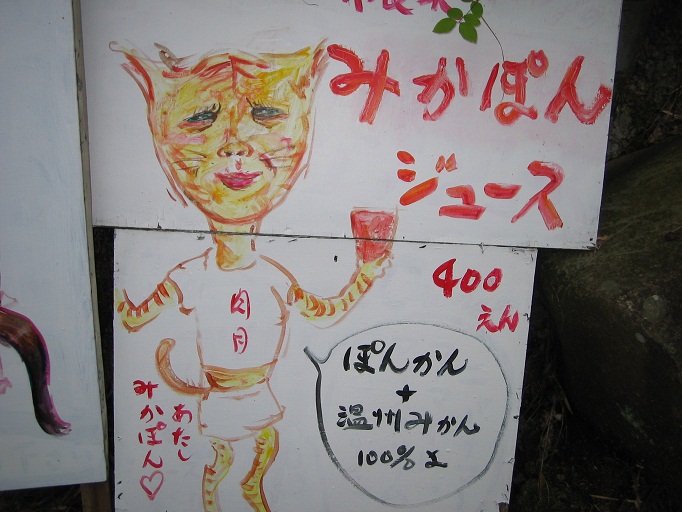 みかぽん
ジュース
400
えん
肉月
ぽんかん
+
温州みかん
100%よ
あたし
みかぽん♡